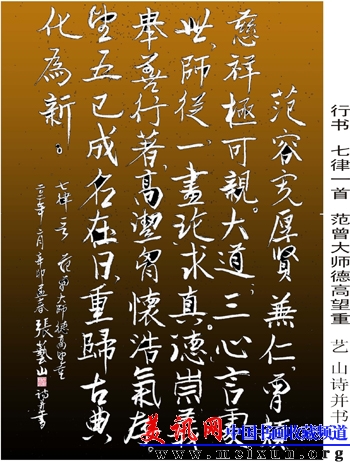 范容宽厚賢兼仁，尊顔
慈祥極可親。大道三心言
世，師從一畫论求真。德崇
舉善行著，高潔胸懷浩氣
望五已成名在日，重歸古典
化為新。
七律一首 范曾大师德高望重
二〇一一年二月辛卯孟春 張藝山 诗並书
行书 七律一首 范曾大师德高望重 艺山诗并书
美讯网
中国书画收藏频道
www.meixun.org